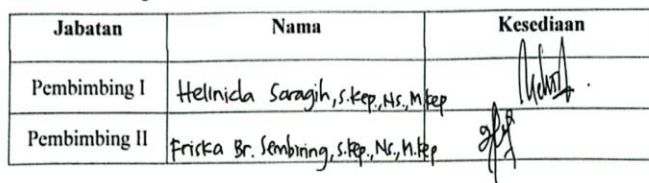 Jabatan Nama Kesediaan
Pembimbing I Helinida Saragih, S.Kep., Ns., M.Kep
Pembimbing II Friska Br. Sembiring, S.Kep., Ns., M.Kep